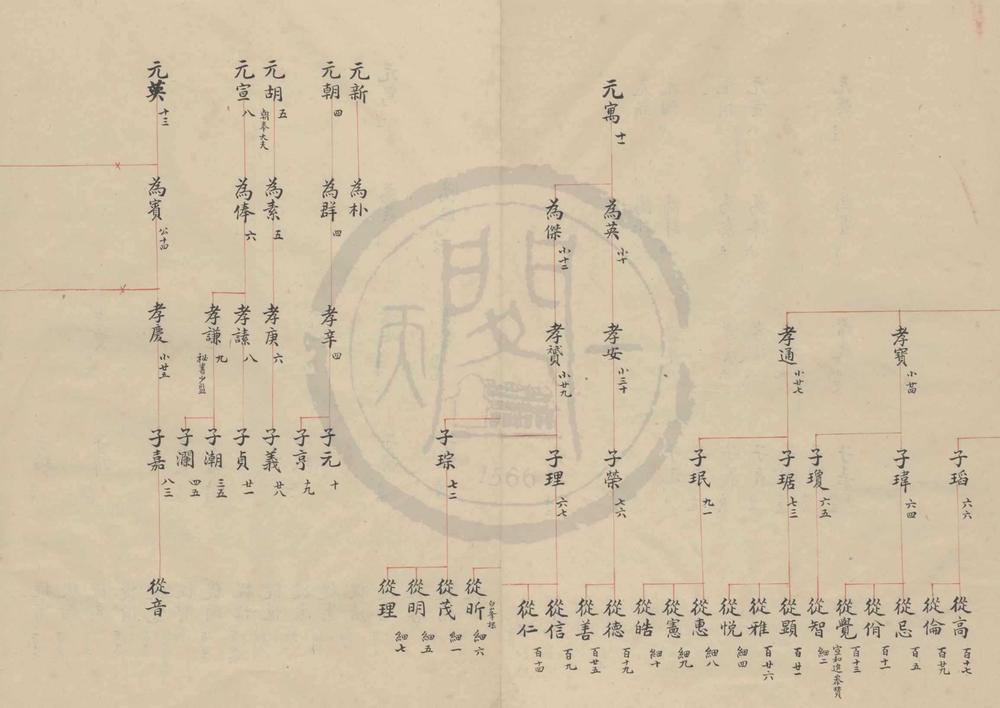 元寓 十一
為英 小十
為傑 小十二
孝寶 小廿四
孝通 小廿七
孝安 小三十
孝贇 小廿九
子瑫 六六
子瑋 六四
子瓊 六五
子琚 七三
子珉 九一
子榮 七六
子理 六七
子琮 七二
從高 百十七
從倫 百廿九
從忌 百五
從佾 百十一
從覺 百十三
宣和進參贊
從智 細二
從顯 百廿一
從雅 百廿六
從悅 細四
從惠 細八
從憲 細九
從皓 細十
從德 百十九
從善 百廿五
從信 百九
從仁 百十四
從昕 細六
從茂 細一
從明 細五
從理 細七
元新
元朝 四
元胡 五
朝奉大夫
元宣 八
元英 十三
為朴
為群 四
為素 五
為俸 六
為賓 公十四
孝辛 四
孝庚 六
孝謙 九
秘書少監
孝慶 小廿五
子元 十
子亨 十九
子義 廿八
子貞 廿一
子潮 三五
子瀾 四五
子嘉 八三
從音
1566